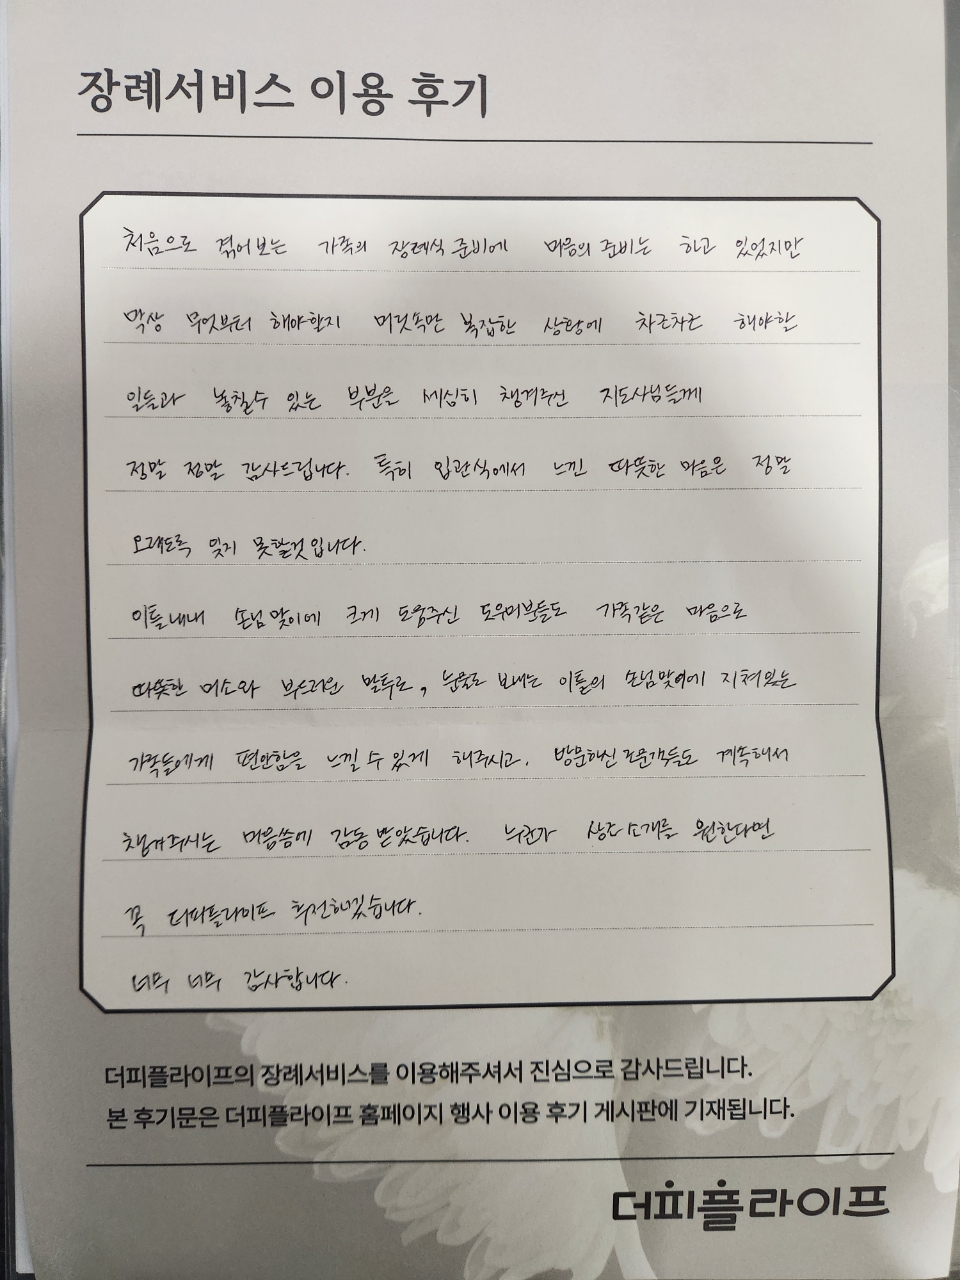 장례서비스 이용 후기
처음으로 겪어보는 가족의 장례식 준비에 마음의 준비는 하고 있었지만
막상 무엇부터 해야할지 머릿속만 복잡한 상황에 차근차근 해야할
일들과 놓칠수 있는 부분을 세심히 챙겨주신 지도사님들께
정말 정말 감사드립니다. 특히 입관식에서 느낀 따뜻한 마음은 정말
오래도록 잊지 못할것 입니다.
이틀내내 손님 맞이에 크게 도움주신 도우미분들도 가족같은 마음으로
따뜻한 미소와 부드러운 말투로, 눈물로 보내는 이틀의 손님맞이에 지쳐있는
가족들에게 편안함을 느낄 수 있게 해주시고, 방문하신 조문객들도 계속해서
챙겨주시는 마음씀에 감동 받았습니다. 누군가 상조 소개를 원한다면
꼭 더피플라이프 추천하겠습니다.
너무 너무 감사합니다.
더피플라이프의 장례서비스를 이용해주셔서 진심으로 감사드립니다.
본 후기문은 더피플라이프 홈페이지 행사 이용 후기 게시판에 기재됩니다.
더피플라이프